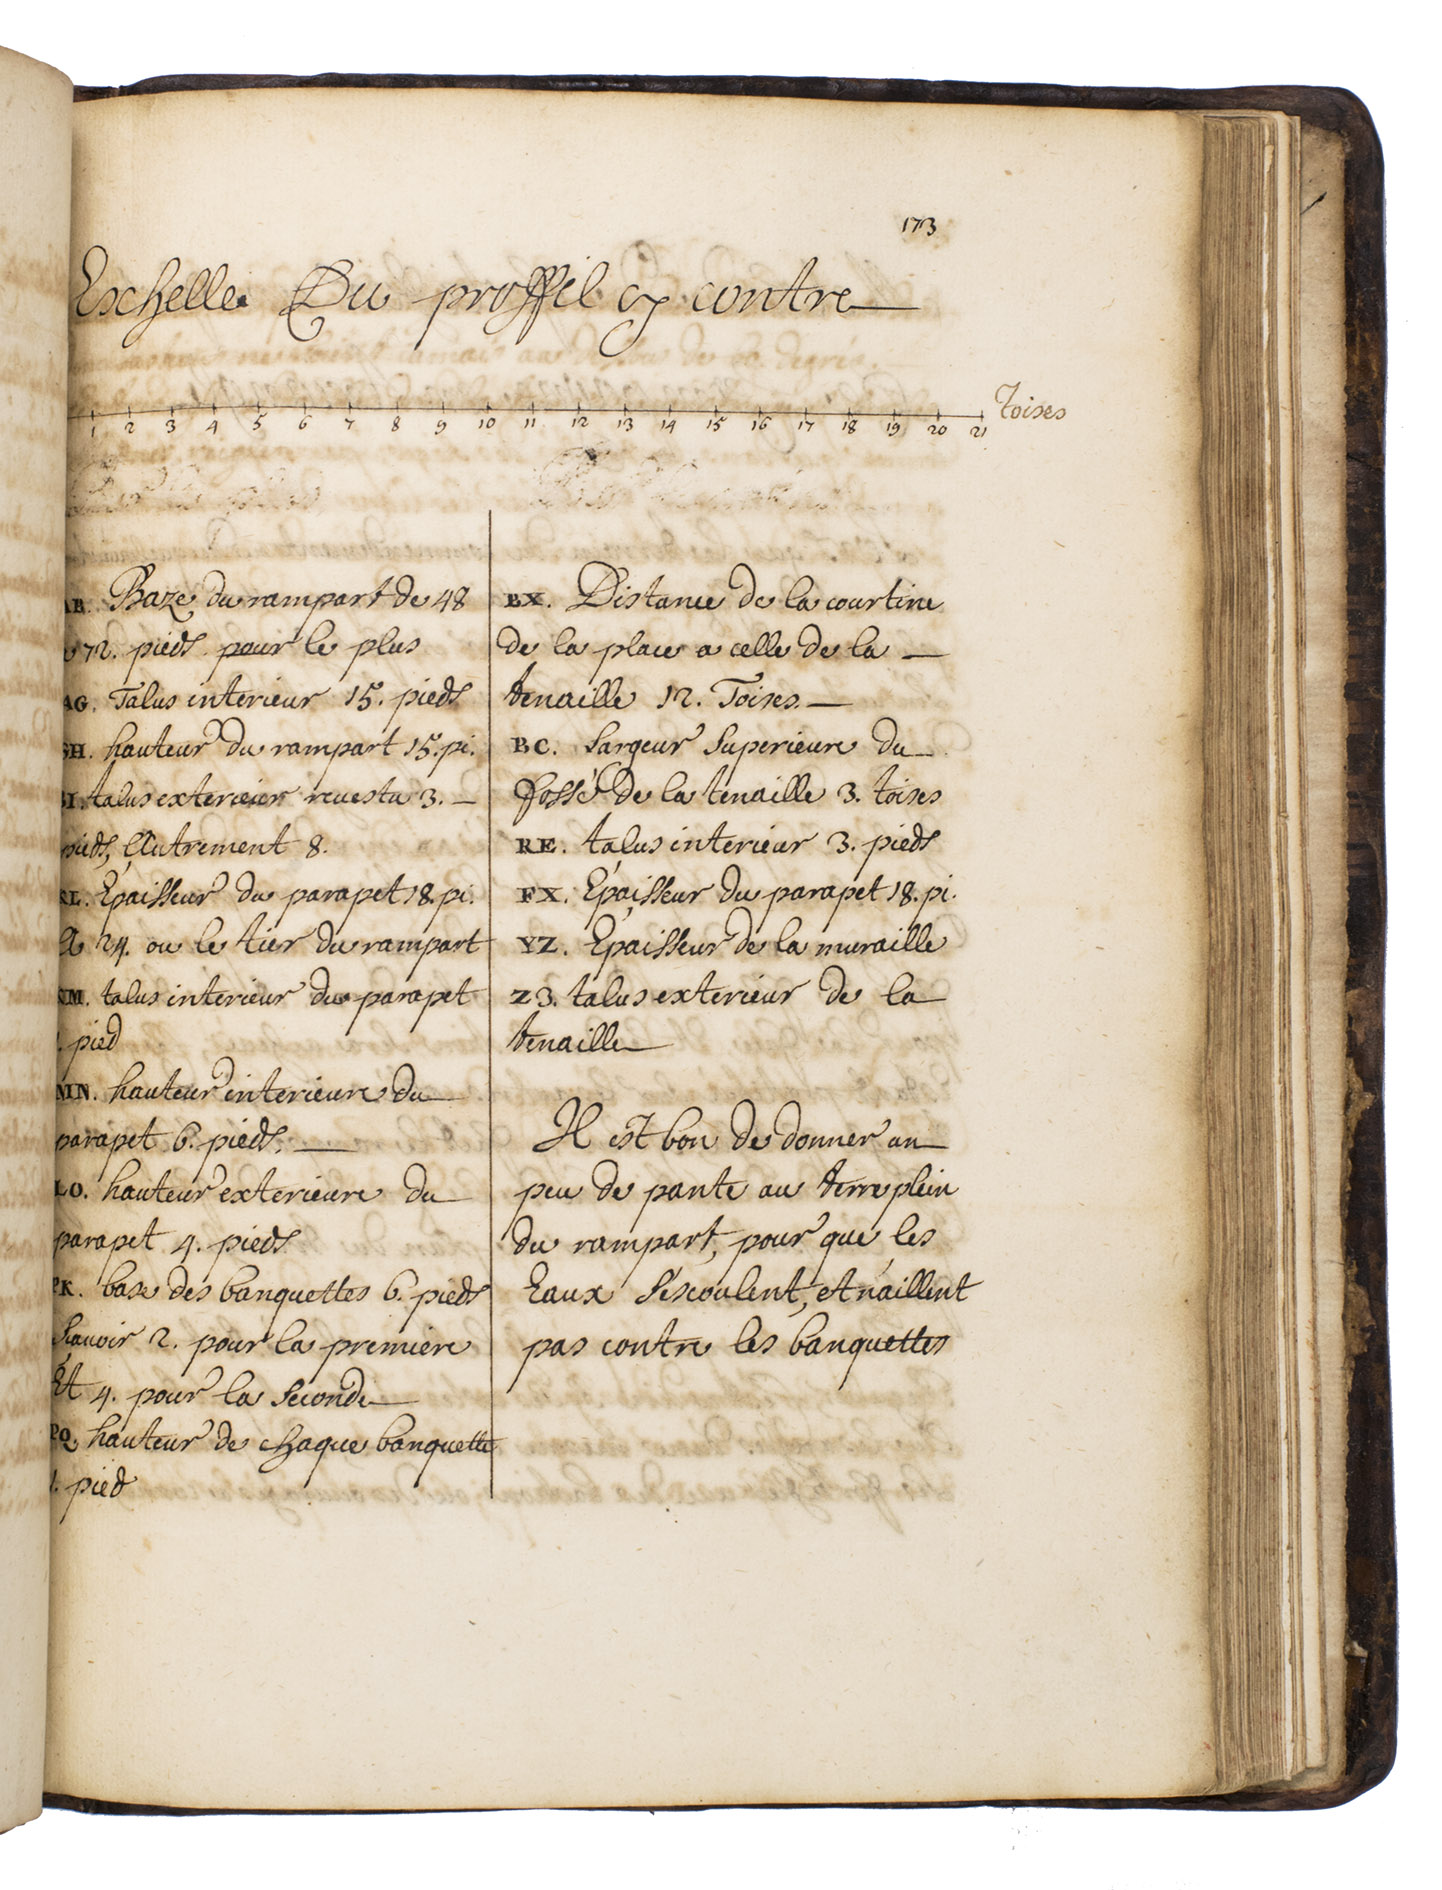 173
Exchelle Du proffil cy contre
Toises
1 2 3 4 5 6 7 8 9 10 11 12 13 14 15 16 17 18 19 20 21
AB. Baze du rampart de 48
72. pieds pour le plus
AG. Talus interieur 15. pieds
GH. hauteur du rampart 15. pi.
BI. talus exterieur revestu 3.
pieds, Autrement 8.
KL. Epaisseur du parapet 18. pi.
A 24. ou le tier du rampart
KM. talus interieur du parapet
1. pied
MN. hauteur interieure du
parapet 6. pieds.
LO. hauteur exterieure du
parapet 4. pieds
PK. base des banquettes 6. pieds
Scavoir 2. pour la premiere
Et 4. pour la seconde
PQ. hauteur de chaque banquette
1. pied
BX. Distance de la courtine
de la place a celle de la
tenaille 12. Toises.
BC. Largeur superieure du
fossé de la tenaille 3. toises
RE. talus interieur 3. pieds
FX. Epaisseur du parapet 18. pi.
YZ. Epaisseur de la muraille
Z3. talus exterieur de la
tenaille
Il est bon de donner un
peu de pante au terreplein
du rampart, pour que les
Eaux s'escoulent, et n'aillent
pas contre les banquettes